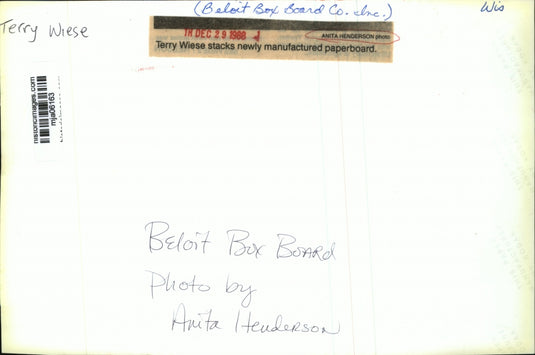 (Beloit Box Board Co. Inc.)
Wis
Terry Wiese
TH DEC 29 1988
ANITA HENDERSON photo
Terry Wiese stacks newly manufactured paperboard.
historicimages.com
mja06163
Beloit Box Board
Photo by
Anita Henderson